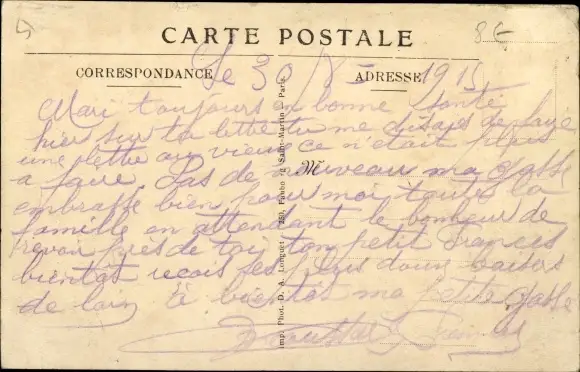 8€
CARTE POSTALE
CORRESPONDANCE
ADRESSE
Le 30/8 1915
Mari toujours en bonne santé
hier sur ta lettre tu me disais de faire
une lettre au vieux ce n'était plus
a faire. Pas de nouveau ma gosse
embrasse bien pour moi toute la
famille en attendant le bonheur de
revoir près de toi ton petit Frances
bientot recois ses plus doux baisers
de loin à bientôt ma petite gosse
M
Imp. Phot. D. A. Longuet, 250, Faubg St Saint-Martin - Paris